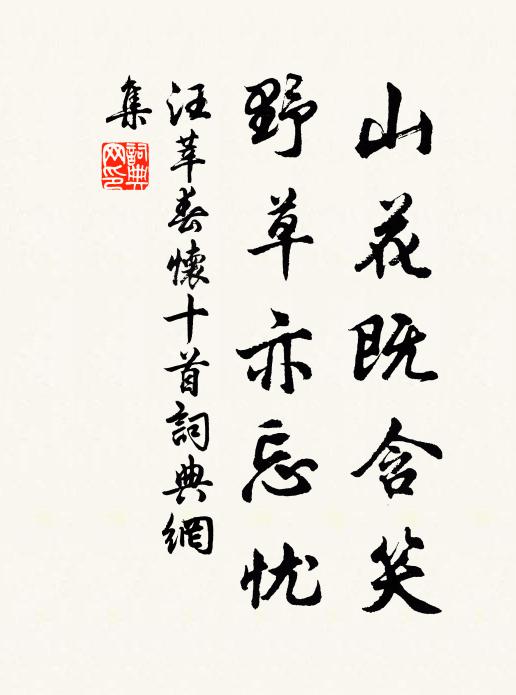 山花既含笑
野草亦忘忧
汪莘春懷十首詞典網
集
詞典
网印